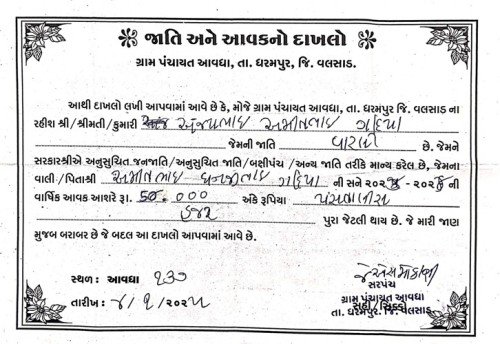 જાતિ અને આવકનો દાખલો
ગ્રામ પંચાયત આવધા, તા. ધરમપુર, જિ. વલસાડ.
આથી દાખલો લખી આપવામાં આવે છે કે, મોજે ગ્રામ પંચાયત આવધા, તા. ધરમપુર જિ. વલસાડ ના
રહીશ શ્રી/શ્રીમતી/કુમારી
જેમની જાતિ વારલી છે. જેમને
સરકારશ્રીએ અનુસુચિત જનજાતિ/અનુસુચિત જાતિ/બક્ષીપંચ /અન્ય જાતિ તરીકે માન્ય કરેલ છે, જેમના
વાલી/પિતાશ્રી ની સને ૨૦૨ -૨૦૨ ની
વાર્ષિક આવક આશરે રૂા. ૦૦૦ અંકે રૂપિયા
હજાર પુરા જેટલી થાય છે. જે મારી જાણ
મુજબ બરાબર છે જે બદલ આ દાખલો આપવામાં આવે છે.
સ્થળ : આવધા
સરપંચ
તારીખ :
ગ્રામ પંચાયત આવધા
તા. ધરમપુર. જિ. વલસાડ.
સહી/સિક્કો